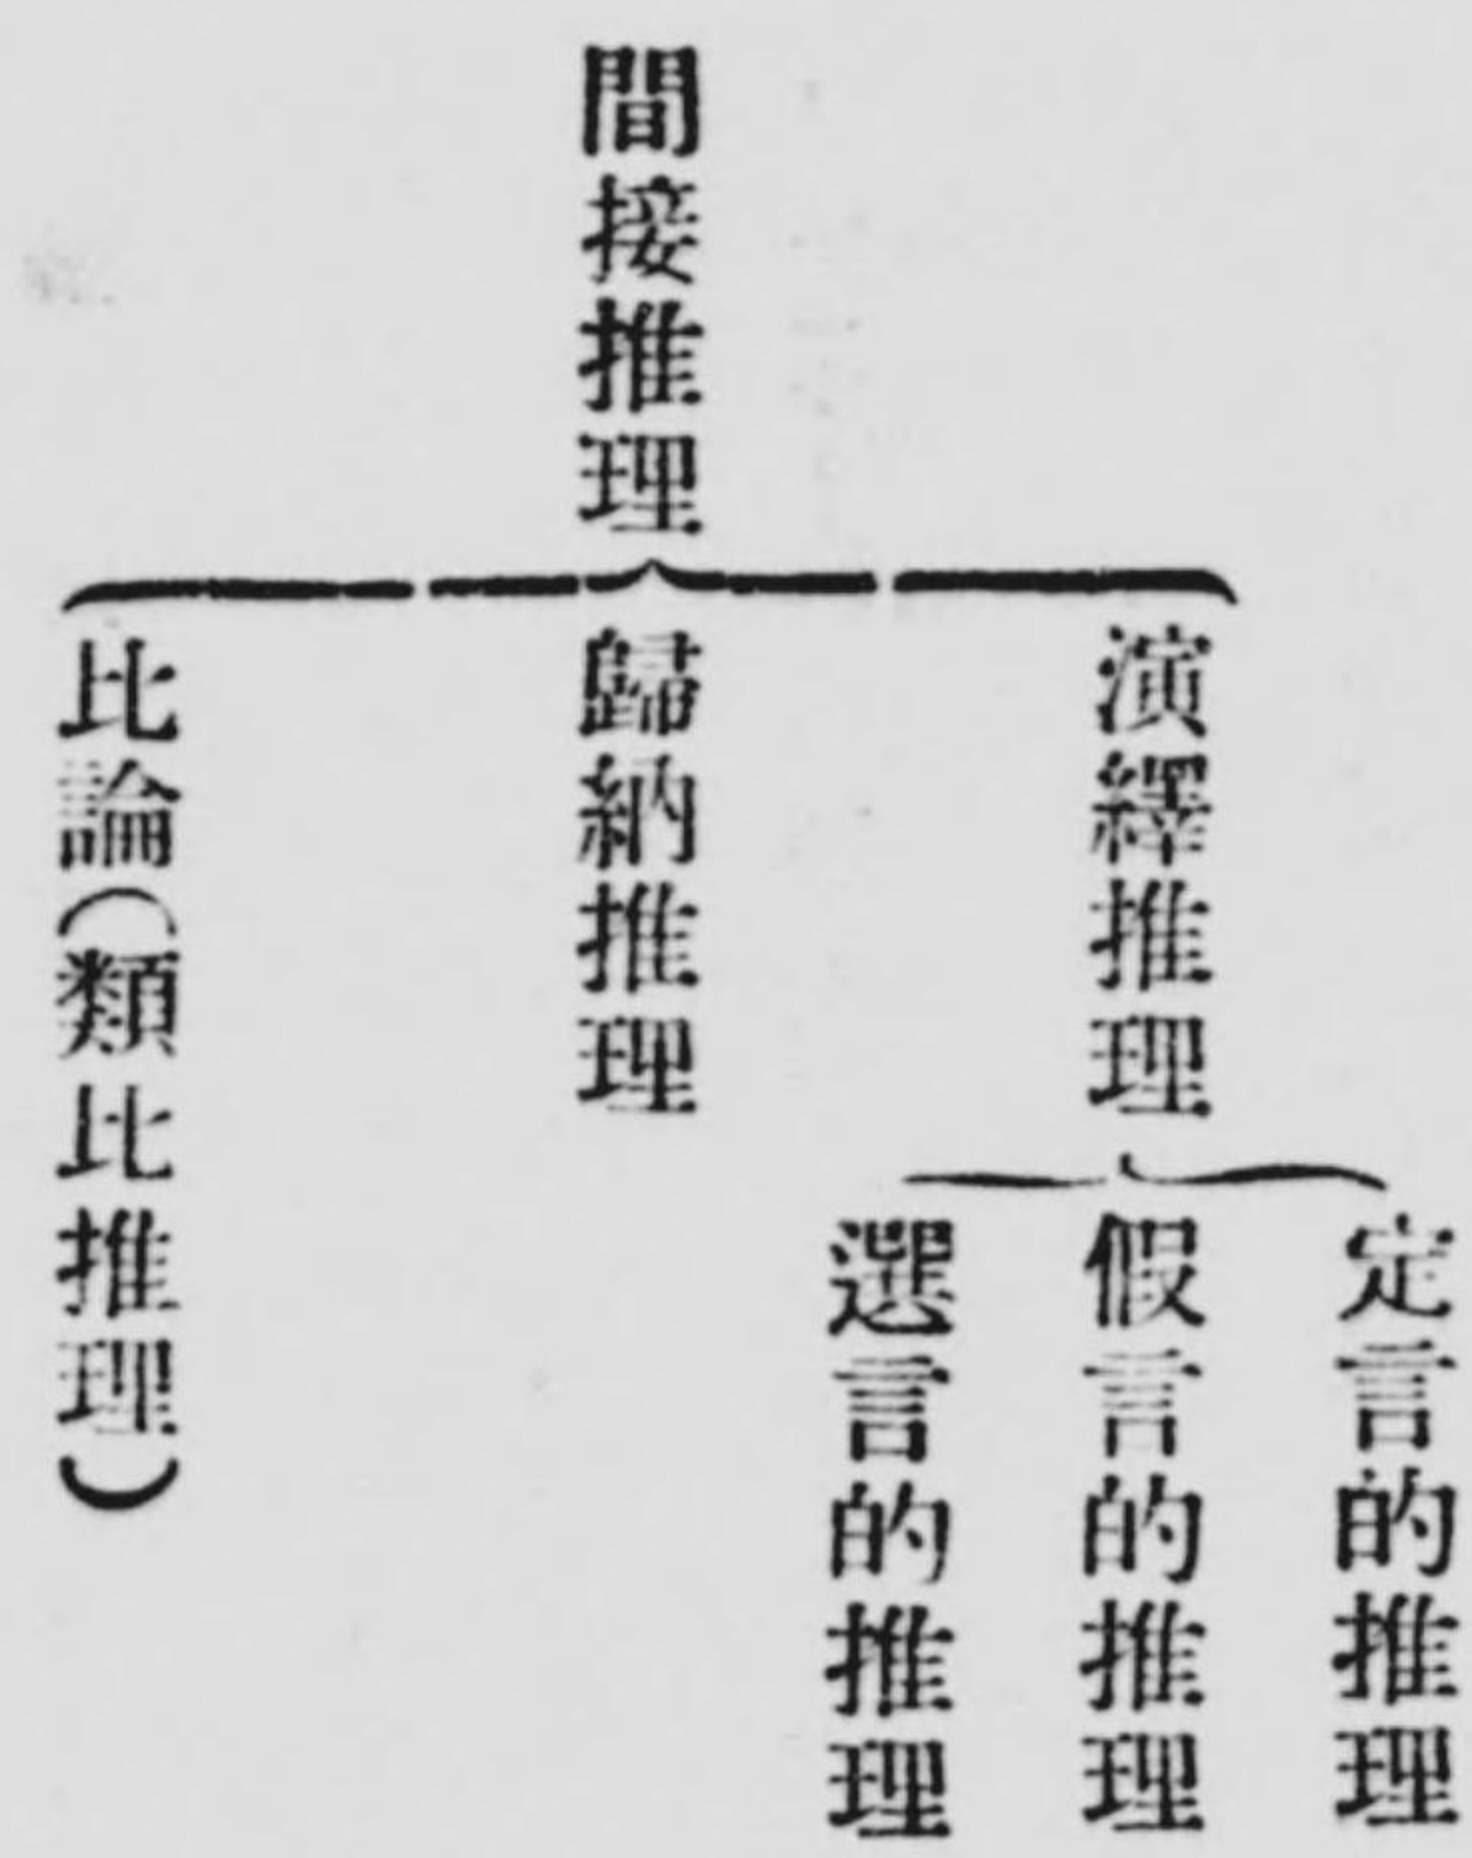 間接推理
演繹推理
定言的推理
假言的推理
選言的推理
歸納推理
比論(類比推理)